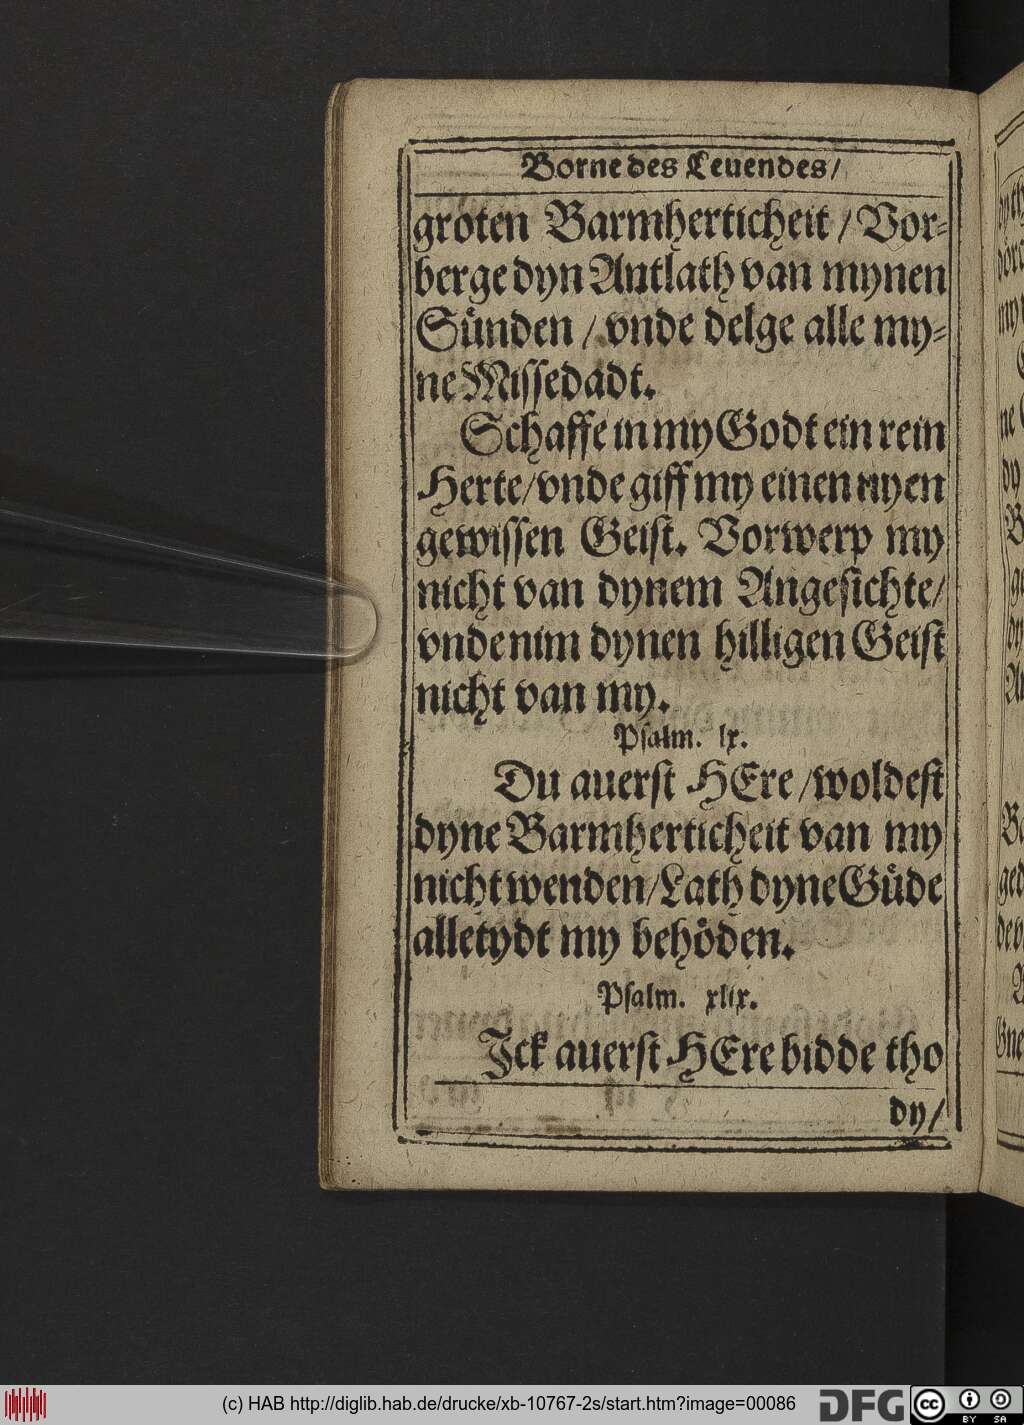 Borne des Leuendes/
groten Barmherticheit / Vor-
berge dyn Antlath van mynen
Sünden / vnde delge alle my-
ne Missedadt.
Schaffe in my Godt ein rein
Herte/vnde giff my einen nyen
gewissen Geist. Vorwerp my
nicht van dynem Angesichte/
vnde nim dynen hilligen Geist
nicht van my.
Psalm. lx.
Du auerst HEre /woldest
dyne Barmherticheit van my
nicht wenden/Lath dyne Güde
alletydt my behöden.
Psalm. xlix.
Jck auerst HEre bidde tho
dy/
(c) HAB http://diglib.hab.de/drucke/xb-10767-2s/start.htm?image=00086
DFG
cc
BY SA